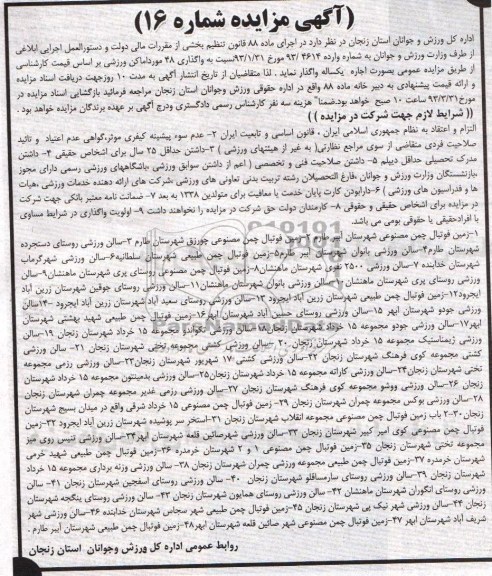 (آگهی مزایده شماره ۱۶)
اداره کل ورزش و جوانان استان زنجان در نظر دارد در اجرای ماده ۸۸ قانون تنظیم بخشی از مقررات مالی دولت و دستورالعمل اجرایی ابلاغی
از طرف وزارت ورزش و جوانان به شماره وارده ۹۳/۴۶۱۴ مورخ ۹۳/۱/۳۱ نسبت به واگذاری ۴۸ مورداماکن ورزشی بر اساس قیمت کارشناسی
از طریق مزایده عمومی بصورت اجاره یکساله واگذار نماید . لذا متقاضیان از تاریخ انتشار آگهی به مدت ۱۰ روزجهت دریافت اسناد مزایده
و ارائه قیمت پیشنهادی به دبیر خانه ماده ۸۸ واقع در اداره حقوقی ورزش وجوانان استان زنجان مراجعه فرمائید بازگشایی اسناد مزایده در
مورخ ۹۳/۳/۳۱ ساعت ۱۰ صبح خواهد بود.ضمنا" هزینه سه نفر کارشناس رسمی دادگستری ودرج آگهی بر عهده برندگان مزایده خواهد بود .
(( شرایط لازم جهت شرکت در مزایده ))
التزام و اعتقاد به نظام جمهوری اسلامی ایران ، قانون اساسی و تابعیت ایران ۲- عدم سوء پیشینه کیفری موثر،گواهی عدم اعتیاد و تائید
صلاحیت فردی متقاضی از سوی مراجع نظارتی( به غیر از هیئتهای ورزشی ) ۳-داشتن حداقل ۲۵ سال برای اشخاص حقیقی ۴- داشتن
مدرک تحصیلی حداقل دیپلم ۵- داشتن صلاحیت فنی و تخصصی ( اعم از داشتن سوابق ورزشی ،باشگاههای ورزشی رسمی دارای مجوز
،بازنشستگان وزارت ورزش و جوانان ،فارغ التحصیلان رشته تربیت بدنی تعاونی های ورزشی شرکت های ارائه دهنده خدمات ورزشی ،هیات
ها و فدراسیون های ورزشی ) ۶-دارابودن کارت پایان خدمت یا معافیت برای متولدین ۱۳۳۸ به بعد ۷- ضمانت نامه معتبر بانکی جهت شرکت
در مزایده برای اشخاص حقیقی و حقوقی ۸- کارمندان دولت حق شرکت در مزایده را نخواهند داشت ۹- اولویت واگذاری در شرایط مساوی
با افرادحقیقی یا حقوقی بومی می باشد.
۱-زمین فوتبال چمن مصنوعی شهرستان ابهر زمین فوتبال چمن مصنوعی چورزق شهرستان طارم ۳-سالن ورزشی روستای دستجرده
شهرستان طارم۴-سالن ورزشی بانوان شهرستان آببر طارم۵-زمین فوتبال چمن طبیعی شهرستان سلطانیه۶-سالن ورزشی شهرگرماب
شهرستان خدابنده ۷-سالن ورزشی ۲۵۰۰ نفری شهرستان ماهنشان۸-زمین فوتبال چمن مصنوعی روستای پری شهرستان ماهنشان۹-سالن
ورزشی روستای پری شهرستان ماهنشان سالن ورزشی بانوان شهرستان ماهنشان۱۱-سالن ورزشی روستای جوقین شهرستان زرین آباد
ایجرود۱۲-زمین فوتبال چمن طبیعی شهرستان زرین آباد ایجرود ۱۳-سالن ورزشی روستای سعید آباد شهرستان زرین آباد ایجرود ۱۴-سالن
ورزشی جودو شهرستان ابهر ۱۵-سالن ورزشی روستای حسین آباد شهرستان ابهر۱۶-زمین فوتبال چمن طبیعی شهید بهشتی شهرستان
ابهر۱۷-سالن ورزشی جودو مجموعه ۱۵ خرداد شهرستان زنجان مجموعه ۱۵ خرداد شهرستان زنجان ۱۹-سالن
ورزشی ژیمناستیک مجموعه ۱۵ خرداد شهرستان زنجان ۲۰ -سالن ورزشی کشتی مجموعه تختی شهرستان زنجان ۲۱- سالن ورزشی
کشتی مجموعه کوی فرهنگ شهرستان زنجان ۲۲-سالن ورزشی کشتی ۱۷ شهریور شهرستان زنجان۲۳-سالن ورزشی رزمی مجموعه
تختی شهرستان زنجان۲۴-سالن ورزشی کاراته مجموعه ۱۵ خرداد شهرستان زنجان۲۵-سالن ورزشی بدمینتون مجموعه ۱۵ خرداد شهرستان
زنجان ۲۶-سالن ورزشی ووشو مجموعه کوی فرهنگ شهرستان زنجان ۲۷-سالن ورزشی رزمی غدیر مجموعه چمران شهرستان زنجان
۲۸-سالن ورزشی بوکس مجموعه چمران شهرستان زنجان ۲۹- زمین فوتبال چمن مصنوعی ۱۵ خرداد شرقی واقع در میدان بسیج شهرستان
زنجان۳۰-۲ باب زمین فوتبال چمن مصنوعی مجموعه انقلاب شهرستان زنجان ۳۱-استخر سر پوشیده شهرستان زرین آباد ایجرود ۳۲-زمین
فوتبال چمن مصنوعی کوی امیر کبیر شهرستان زنجان ۳۳-سالن ورزشی شهرصائین قلعه شهرستان ابهر۳۴-سالن ورزشی تنیس روی میز
مجموعه تختی شهرستان زنجان ۳۵-زمین فوتبال چمن مصنوعی ۱ و ۲ شهرستان خرمدره ۳۶-زمین فوتبال چمن طبیعی شهید خرمی
شهرستان خرمدره ۳۷-زمین فوتبال چمن طبیعی مجموعه ورزشی چمران شهرستان زنجان ۳۸- سالن ورزشی وزنه برداری مجموعه ۱۵ خرداد
شهرستان زنجان ۳۹-سالن ورزشی روستای سارمساقلو شهرستان زنجان ۴۰- سالن ورزشی روستای اسفجین شهرستان زنجان ۴۱- سالن
ورزشی روستای انگوران شهرستان ماهنشان ۴۲- سالن ورزشی روستای همایون شهرستان زنجان ۴۳- سالن ورزشی روستای ینگجه شهرستان
زنجان ۴۴-سالن ورزشی شهر نیک پی شهرستان زنجان ۴۵-زمین فوتبال چمن طبیعی شهر سجاس شهرستان خدابنده ۴۶-سالن ورزشی شهر
شریف آباد شهرستان ابهر ۴۷-زمین فوتبال چمن مصنوعی شهر صائین قلعه شهرستان ابهر۴۸-زمین فوتبال چمن طبیعی شهرستان آببر طارم .
روابط عمومی اداره کل ورزش وجوانان استان زنجان